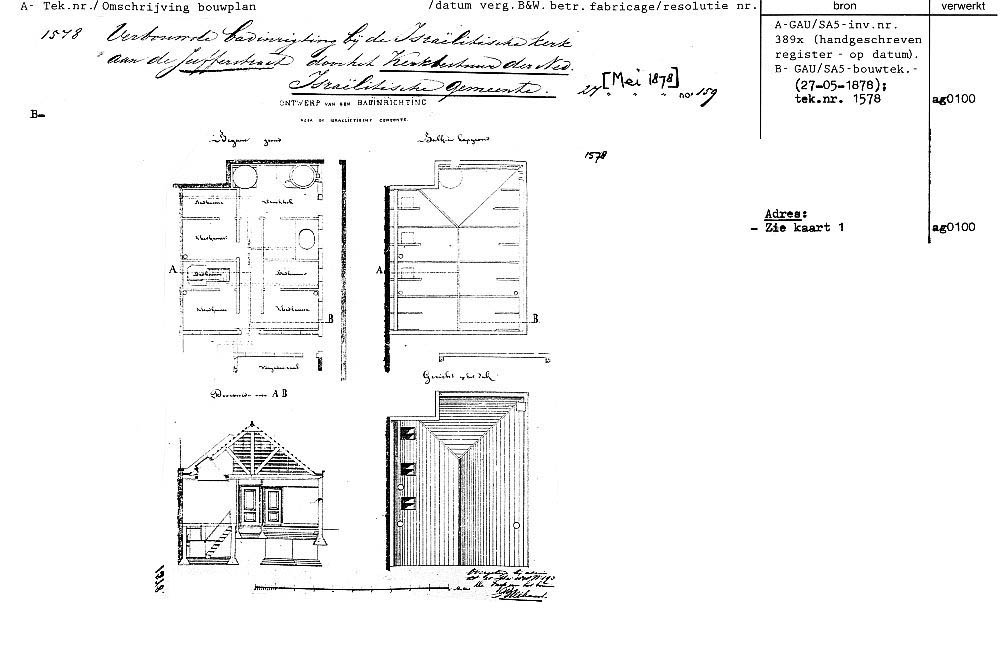 A- Tek.nr./Omschrijving bouwplan /datum verg.B&W. betr. fabricage/resolutie nr.
bron
verwerkt
1578 Verbouwde badinrigting bij de Israëlitische kerk
aan de Jufferstraat door het Kerkbestuur der Ned.
Israëlitische Gemeente.
27 [Mei 1878]
" " " no. 159
A-GAU/SA5-inv.nr.
389x (handgeschreven
register - op datum).
B- GAU/SA5-bouwtek.-
(27-05-1878);
tek.nr. 1578
ag0100
B-
ONTWERP VAN EEN BADINRICHTING
VOOR DE ISRAELIETISCHE GEMEENTE.
Begane grond
Balk en Kapgrond
1578
A
B
A
B
Adres:
- Zie kaart 1
ag0100
Gezicht op het dak
Doorsnede over A B
1578